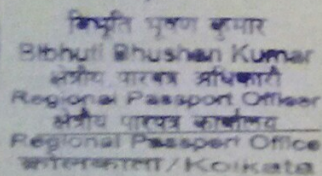 विभूति भूषण कुमार
Bibhuti Bhushan Kumar
क्षेत्रीय पारपत्र अधिकारी
Regional Passport Officer
क्षेत्रीय पारपत्र कार्यालय
Regional Passport Office
कोलकाता/Kolkata